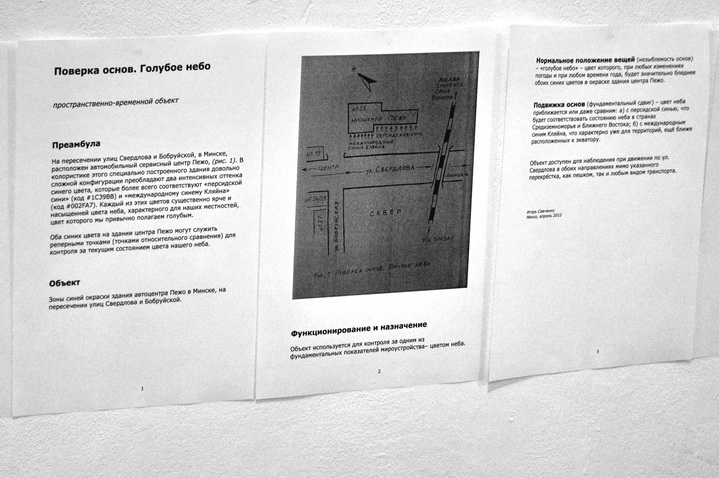 Поверка основ. Голубое небо
пространственно-временной объект
Преамбула
На пересечении улиц Свердлова и Бобруйской, в Минске,
расположен автомобильный сервисный центр Пежо, (рис. 1). В
колористике этого специально построенного здания довольно
сложной конфигурации преобладают два интенсивных оттенка
синего цвета, которые более всего соответствуют «персидской
сини» (код #1C39BB) и «международному синему Кляйна»
(код #002FA7). Каждый из этих цветов существенно ярче и
насыщенней цвета неба, характерного для наших местностей,
цвет которого мы привычно полагаем голубым.
Оба синих цвета на здании центра Пежо могут служить
реперными точками (точками относительного сравнения) для
контроля за текущим состоянием цвета нашего неба.
Объект
Зоны синей окраски здания автоцентра Пежо в Минске, на
пересечении улиц Свердлова и Бобруйской.
1
АВТОЦЕНТР ПЕЖО
ПЕРСИДСКАЯ СИНЬ
МЕЖДУНАРОДНЫЙ
СИНИЙ КЛЯЙНА
ЦЕНТР
УЛ. СВЕРДЛОВА
УЛ. БОБРУЙСКАЯ
СКВЕР
Рис. 1 Поверка основ. Голубое небо
Функционирование и назначение
Объект используется для контроля за одним из
фундаментальных показателей мироустройства– цветом неба.
2
Нормальное положение вещей (незыблемость основ)
– «голубое небо» – цвет которого, при любых изменениях
погоды и при любом времени года, будет значительно бледнее
обоих синих цветов в окраске здания центра Пежо.
Подвижка основ (фундаментальный сдвиг) – цвет неба
приближается или даже сравним: а) с персидской синью, что
будет соответствовать состоянию неба в странах
Средиземноморья и Ближнего Востока; б) с международным
синим Кляйна, что характерно уже для территорий, ещё ближе
расположенных к экватору.
Объект доступен для наблюдения при движении по ул.
Свердлова в обоих направлениях мимо указанного
перекрёстка, как пешком, так и любым видом транспорта.
Игорь Савченко
Минск, апрель 2012
3